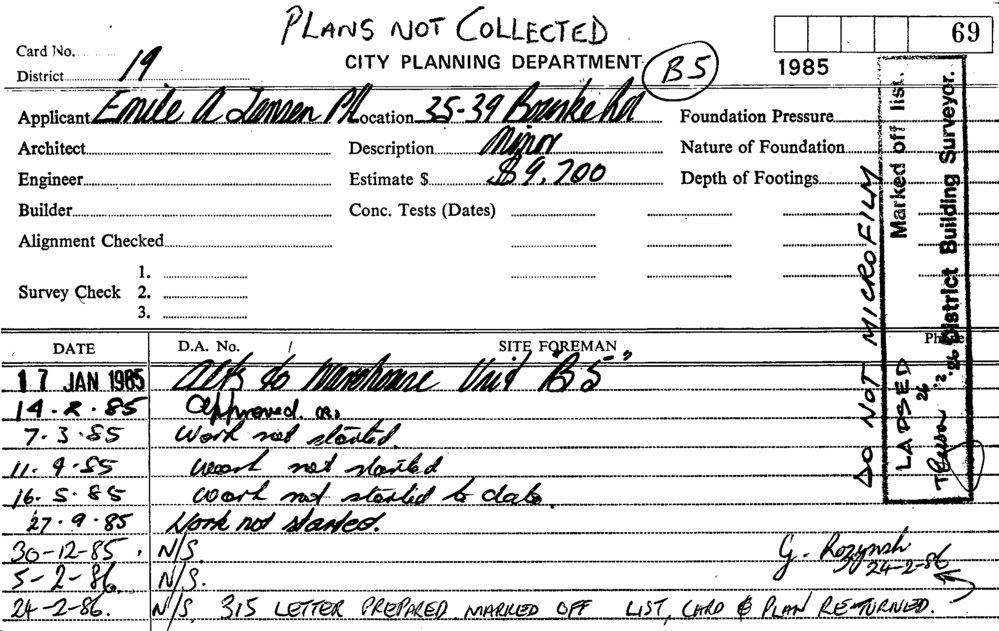 PLANS NOT COLLECTED
69
Card No.
CITY PLANNING DEPARTMENT
B5
1985
District 19
Applicant Emile A Jansen P/L Location 35-39 Bourke Rd Foundation Pressure
Architect Description Minor Nature of Foundation
Engineer Estimate $ $9,700 Depth of Footings
Builder Conc. Tests (Dates)
Alignment Checked
1.
Survey Check 2.
3.
DATE D.A. No. SITE FOREMAN
17 JAN 1985 Alts to Warehouse Unit "B5"
14.2.85 Approved.
7.3.85 Work not started.
11.4.85 Work not started
16.5.85 work not started to date.
27.9.85 Work not started.
30-12-85. N/S.
5-2-86. N/S.
24-2-86. N/S. 315 LETTER PREPARED. MARKED OFF LIST, CARD & PLAN RETURNED.
G.
24-2-86
DO NOT MICROFILM
LAPSED Marked off list.
26.2.86 District Building Surveyor.